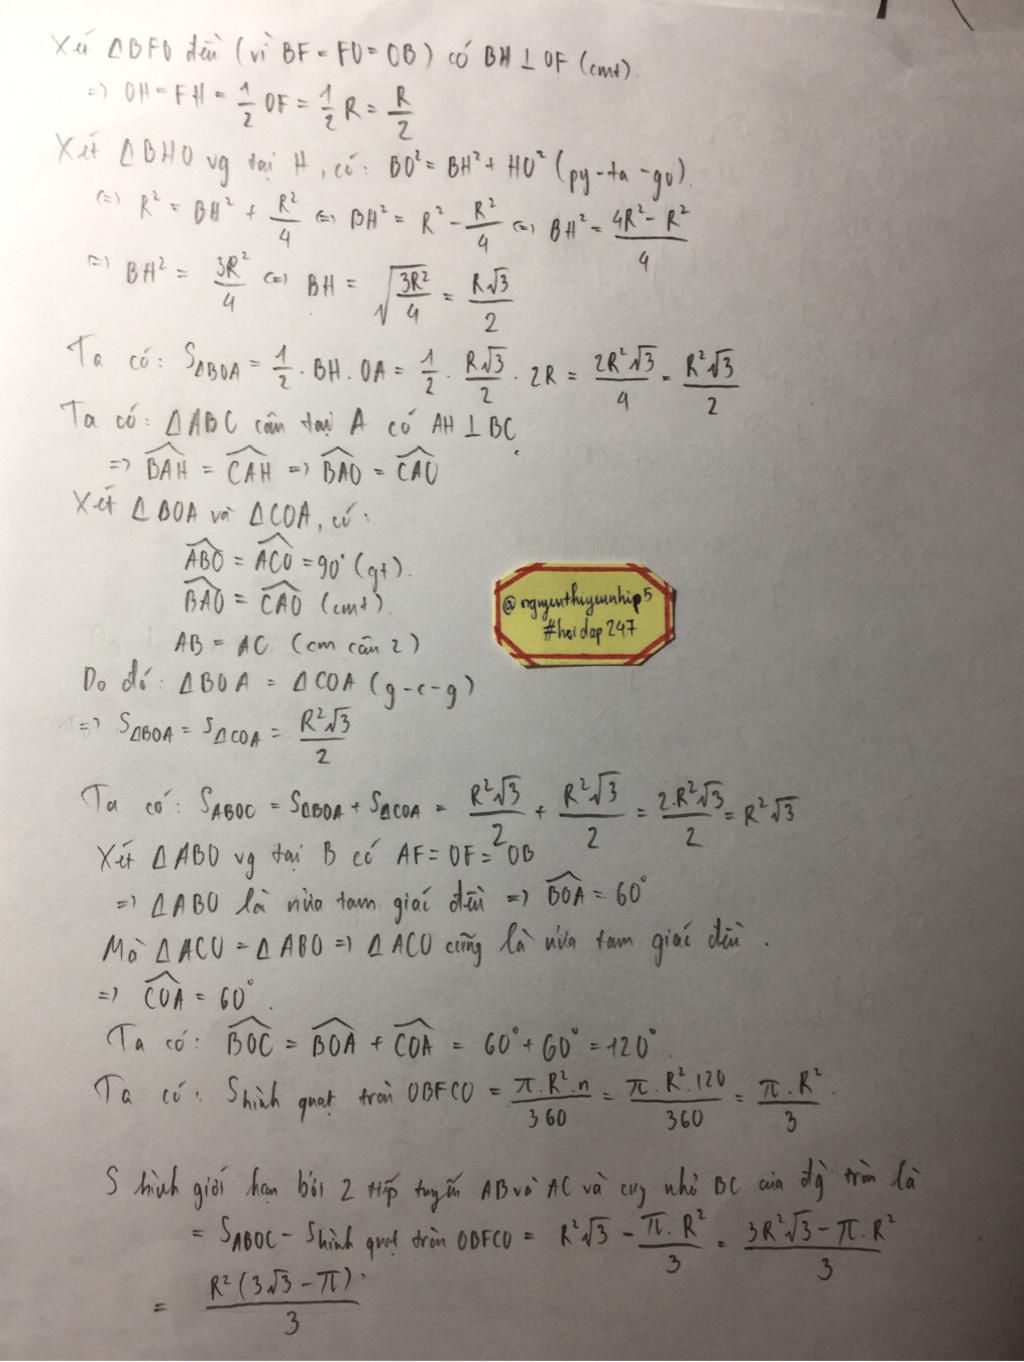 Xét ΔBFO đều (vì BF = FO = OB) có BH ⊥ OF (cmt)
=> OH = FH = 1/2 OF = 1/2 R = R/2
Xét ΔBHO vg tại H, có: BO² = BH² + HO² (py-ta-go)
<=> R² = BH² + R²/4 <=> BH² = R² - R²/4 <=> BH² = (4R² - R²)/4
<=> BH² = 3R²/4 <=> BH = √(3R²/4) = R√3/2
Ta có: SΔBOA = 1/2 . BH . OA = 1/2 . R√3/2 . 2R = 2R²√3/4 = R²√3/2
Ta có: ΔABC cân tại A có AH ⊥ BC
=> BAH = CAH => BAO = CAO
Xét ΔBOA và ΔCOA, có:
ABO = ACO = 90° (gt).
BAO = CAO (cmt)
AB = AC (cm câu 2)
@nguyenthiyennhip5
#hoidap247
Do đó: ΔBOA = ΔCOA (g-c-g)
=> SΔBOA = SΔCOA = R²√3/2
Ta có: SABOC = SΔBOA + SΔCOA = R²√3/2 + R²√3/2 = 2.R²√3/2 = R²√3
Xét ΔABO vg tại B có AF = OF = OB
=> ΔABO là nửa tam giác đều => BOA = 60°
Mà ΔACO = ΔABO => ΔACO cũng là nửa tam giác đều.
=> COA = 60°.
Ta có: BOC = BOA + COA = 60° + 60° = 120°
Ta có: S hình quạt tròn OBFCO = π.R².n/360 = π.R².120/360 = π.R²/3
S hình giới hạn bởi 2 tiếp tuyến AB và AC và cung nhỏ BC của đg tròn là
= SABOC - S hình quạt tròn OBFCO = R²√3 - π.R²/3 = (3R²√3 - π.R²)/3
= R²(3√3 - π)/3